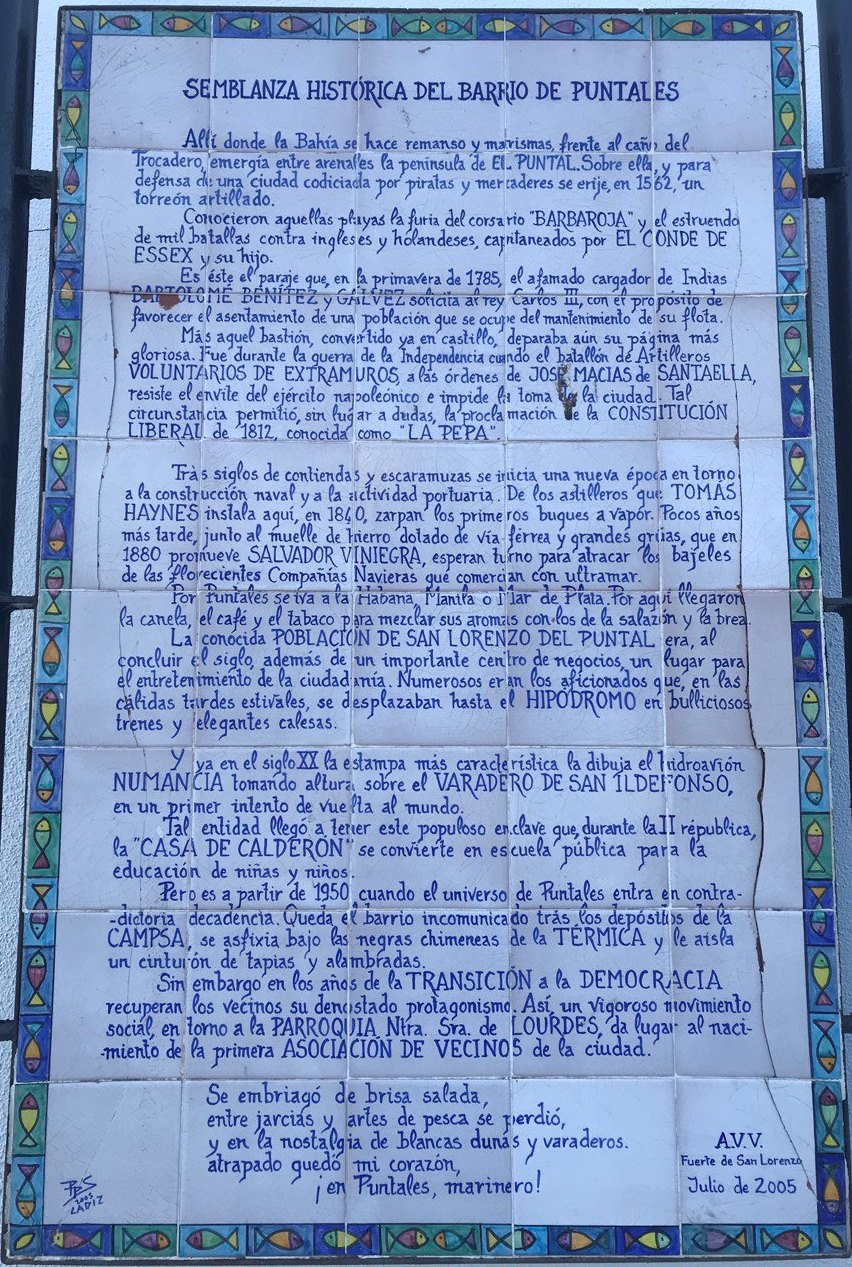 SEMBLANZA HISTÓRICA DEL BARRIO DE PUNTALES
Allí donde la Bahía se hace remanso y marismas, frente al caño del
Trocadero, emergía entre arenales la península de EL PUNTAL. Sobre ella, y para
defensa de una ciudad codiciada por piratas y mercaderes se erije, en 1562, un
torreón artillado.
Conocieron aquellas playas la furia del corsario "BARBAROJA" y el estruendo
de mil batallas contra ingleses y holandeses, capitaneados por EL CONDE DE
ESSEX y su hijo.
Es éste el paraje que, en la primavera de 1785, el afamado cargador de Indias
BARTOLOMÉ BENÍTEZ y GÁLVEZ solicita al rey Carlos III, con el propósito de
favorecer el asentamiento de una población que se ocupe del mantenimiento de su flota.
Más aquel bastión, convertido ya en castillo, deparaba aún su página más
gloriosa. Fue durante la guerra de la Independencia cuando el batallón de Artilleros
VOLUNTARIOS DE EXTRAMUROS, a las órdenes de JOSÉ MACIAS de SANTAELLA,
resiste el envite del ejército napoleónico e impide la toma de la ciudad. Tal
circunstancia permitió, sin lugar a dudas, la proclamación de la CONSTITUCIÓN
LIBERAL de 1812, conocida como "LA PEPA".
Trás siglos de contiendas y escaramuzas se inicia una nueva época en torno
a la construcción naval y a la actividad portuaria. De los astilleros que TOMÁS
HAYNES instala aquí, en 1840, zarpan los primeros buques a vapor. Pocos años
más tarde, junto al muelle de hierro dotado de vía férrea y grandes grúas, que en
1880 promueve SALVADOR VINIEGRA, esperan turno para atracar los bajeles
de las florecientes Compañías Navieras que comercian con ultramar.
Por Puntales se iva a la Habana, Manila o Mar de Plata. Por aquí llegaron
la canela, el café y el tabaco para mezclar sus aromas con los de la salazón y la brea.
La conocida POBLACIÓN DE SAN LORENZO DEL PUNTAL era, al
concluir el siglo, además de un importante centro de negocios, un lugar para
el entretenimiento de la ciudadanía. Numerosos eran los aficionados que, en las
cálidas tardes estivales, se desplazaban hasta el HIPÓDROMO en bulliciosos
trenes y elegantes calesas.
Y ya en el siglo XX la estampa más característica la dibuja el hidroavión
NUMANCIA tomando altura sobre el VARADERO DE SAN ILDEFONSO,
en un primer intento de vuelta al mundo.
Tal entidad llegó a tener este populoso enclave que, durante la II república,
la "CASA DE CALDERÓN" se convierte en escuela pública para la
educación de niñas y niños.
Pero es a partir de 1950 cuando el universo de Puntales entra en contra-
-dictoria decadencia. Queda el barrio incomunicado trás los depósitos de la
CAMPSA, se asfixia bajo las negras chimeneas de la TÉRMICA y le aisla
un cinturón de tapias y alambradas.
Sin embargo en los años de la TRANSICIÓN a la DEMOCRACIA
recuperan los vecinos su denostado protagonismo. Así, un vigoroso movimiento
social, en torno a la PARROQUIA Ntra. Sra. de LOURDES, da lugar al naci-
-miento de la primera ASOCIACIÓN DE VECINOS de la ciudad.
Se embriagó de brisa salada,
entre jarcias y artes de pesca se perdió,
y en la nostalgia de blancas dunas y varaderos.
atrapado quedó mi corazón,
¡en Puntales, marinero!
A.V.V.
Fuerte de San Lorenzo
Julio de 2005
2005
CÁDIZ